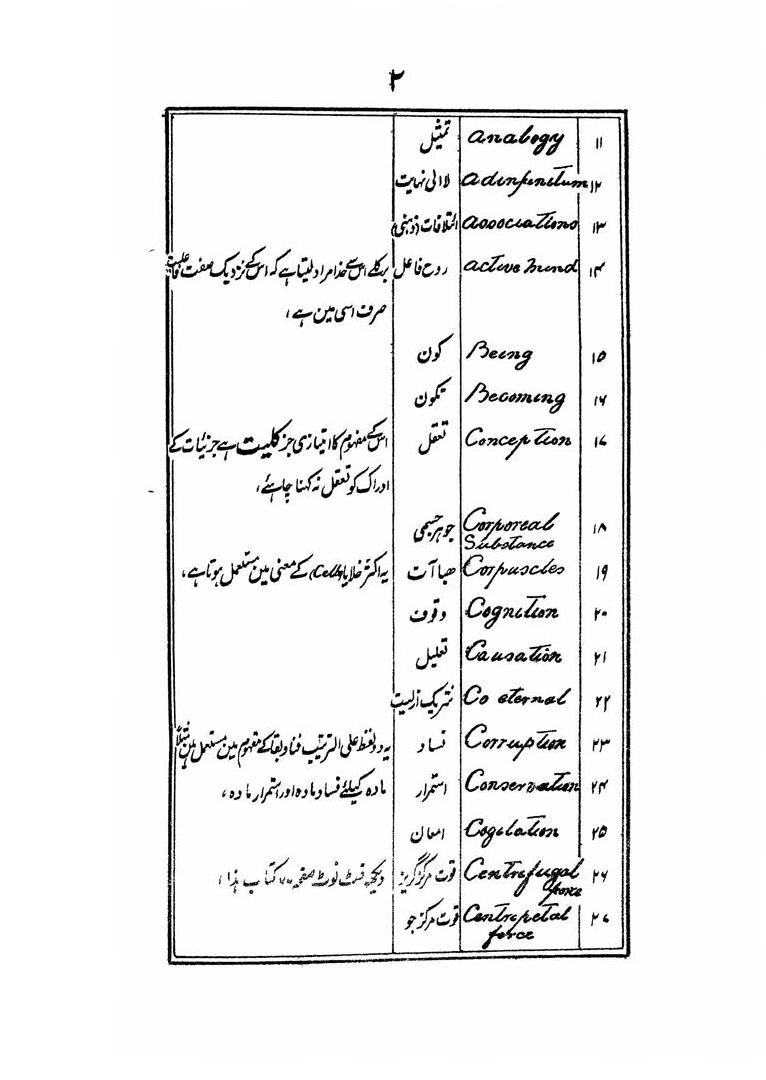 ۲
۱۱ Analogy تمثیل
۱۲ Adinfinitum لاالی نہایت
۱۳ Associations ائتلافات (ذہنی)
۱۴ Active mind روح فاعل برکلے اس سے خدا مراد لیتا ہے کہ اس کے نزدیک صفت فاعلیت
صرف اسی مین ہے،
۱۵ Being کون
۱۶ Becoming تکون
۱۷ Conception تعقل اس کے مفہوم کا امتیازی جز کلیت ہے جزئیات کے
ادراک کو تعقل نہ کہنا چاہئے،
۱۸ Corporeal جوہر جسمی
Substance
۱۹ Corpuscles ھباآت یہ اکثر خلایا (Cells) کے معنی مین مستعمل ہوتا ہے،
۲۰ Cognition وقوف
۲۱ Causation تعلیل
۲۲ Co eternal شریک ازلیت
۲۳ Corruption فساد یہ دو لفظ علی الترتیب فنا و بقا کے مفہوم مین مستعمل ہین مثلاً
۲۴ Conservation استمرار مادہ کیلئے فساد مادہ اور استمرار مادہ،
۲۵ Cogitation امعان
۲۶ Centrifugal قوت مرکز گریز دیکھو فٹ نوٹ صفحہ ۷۷ کتاب ہذا،
force
۲۷ Centripetal قوت مرکز جو
force